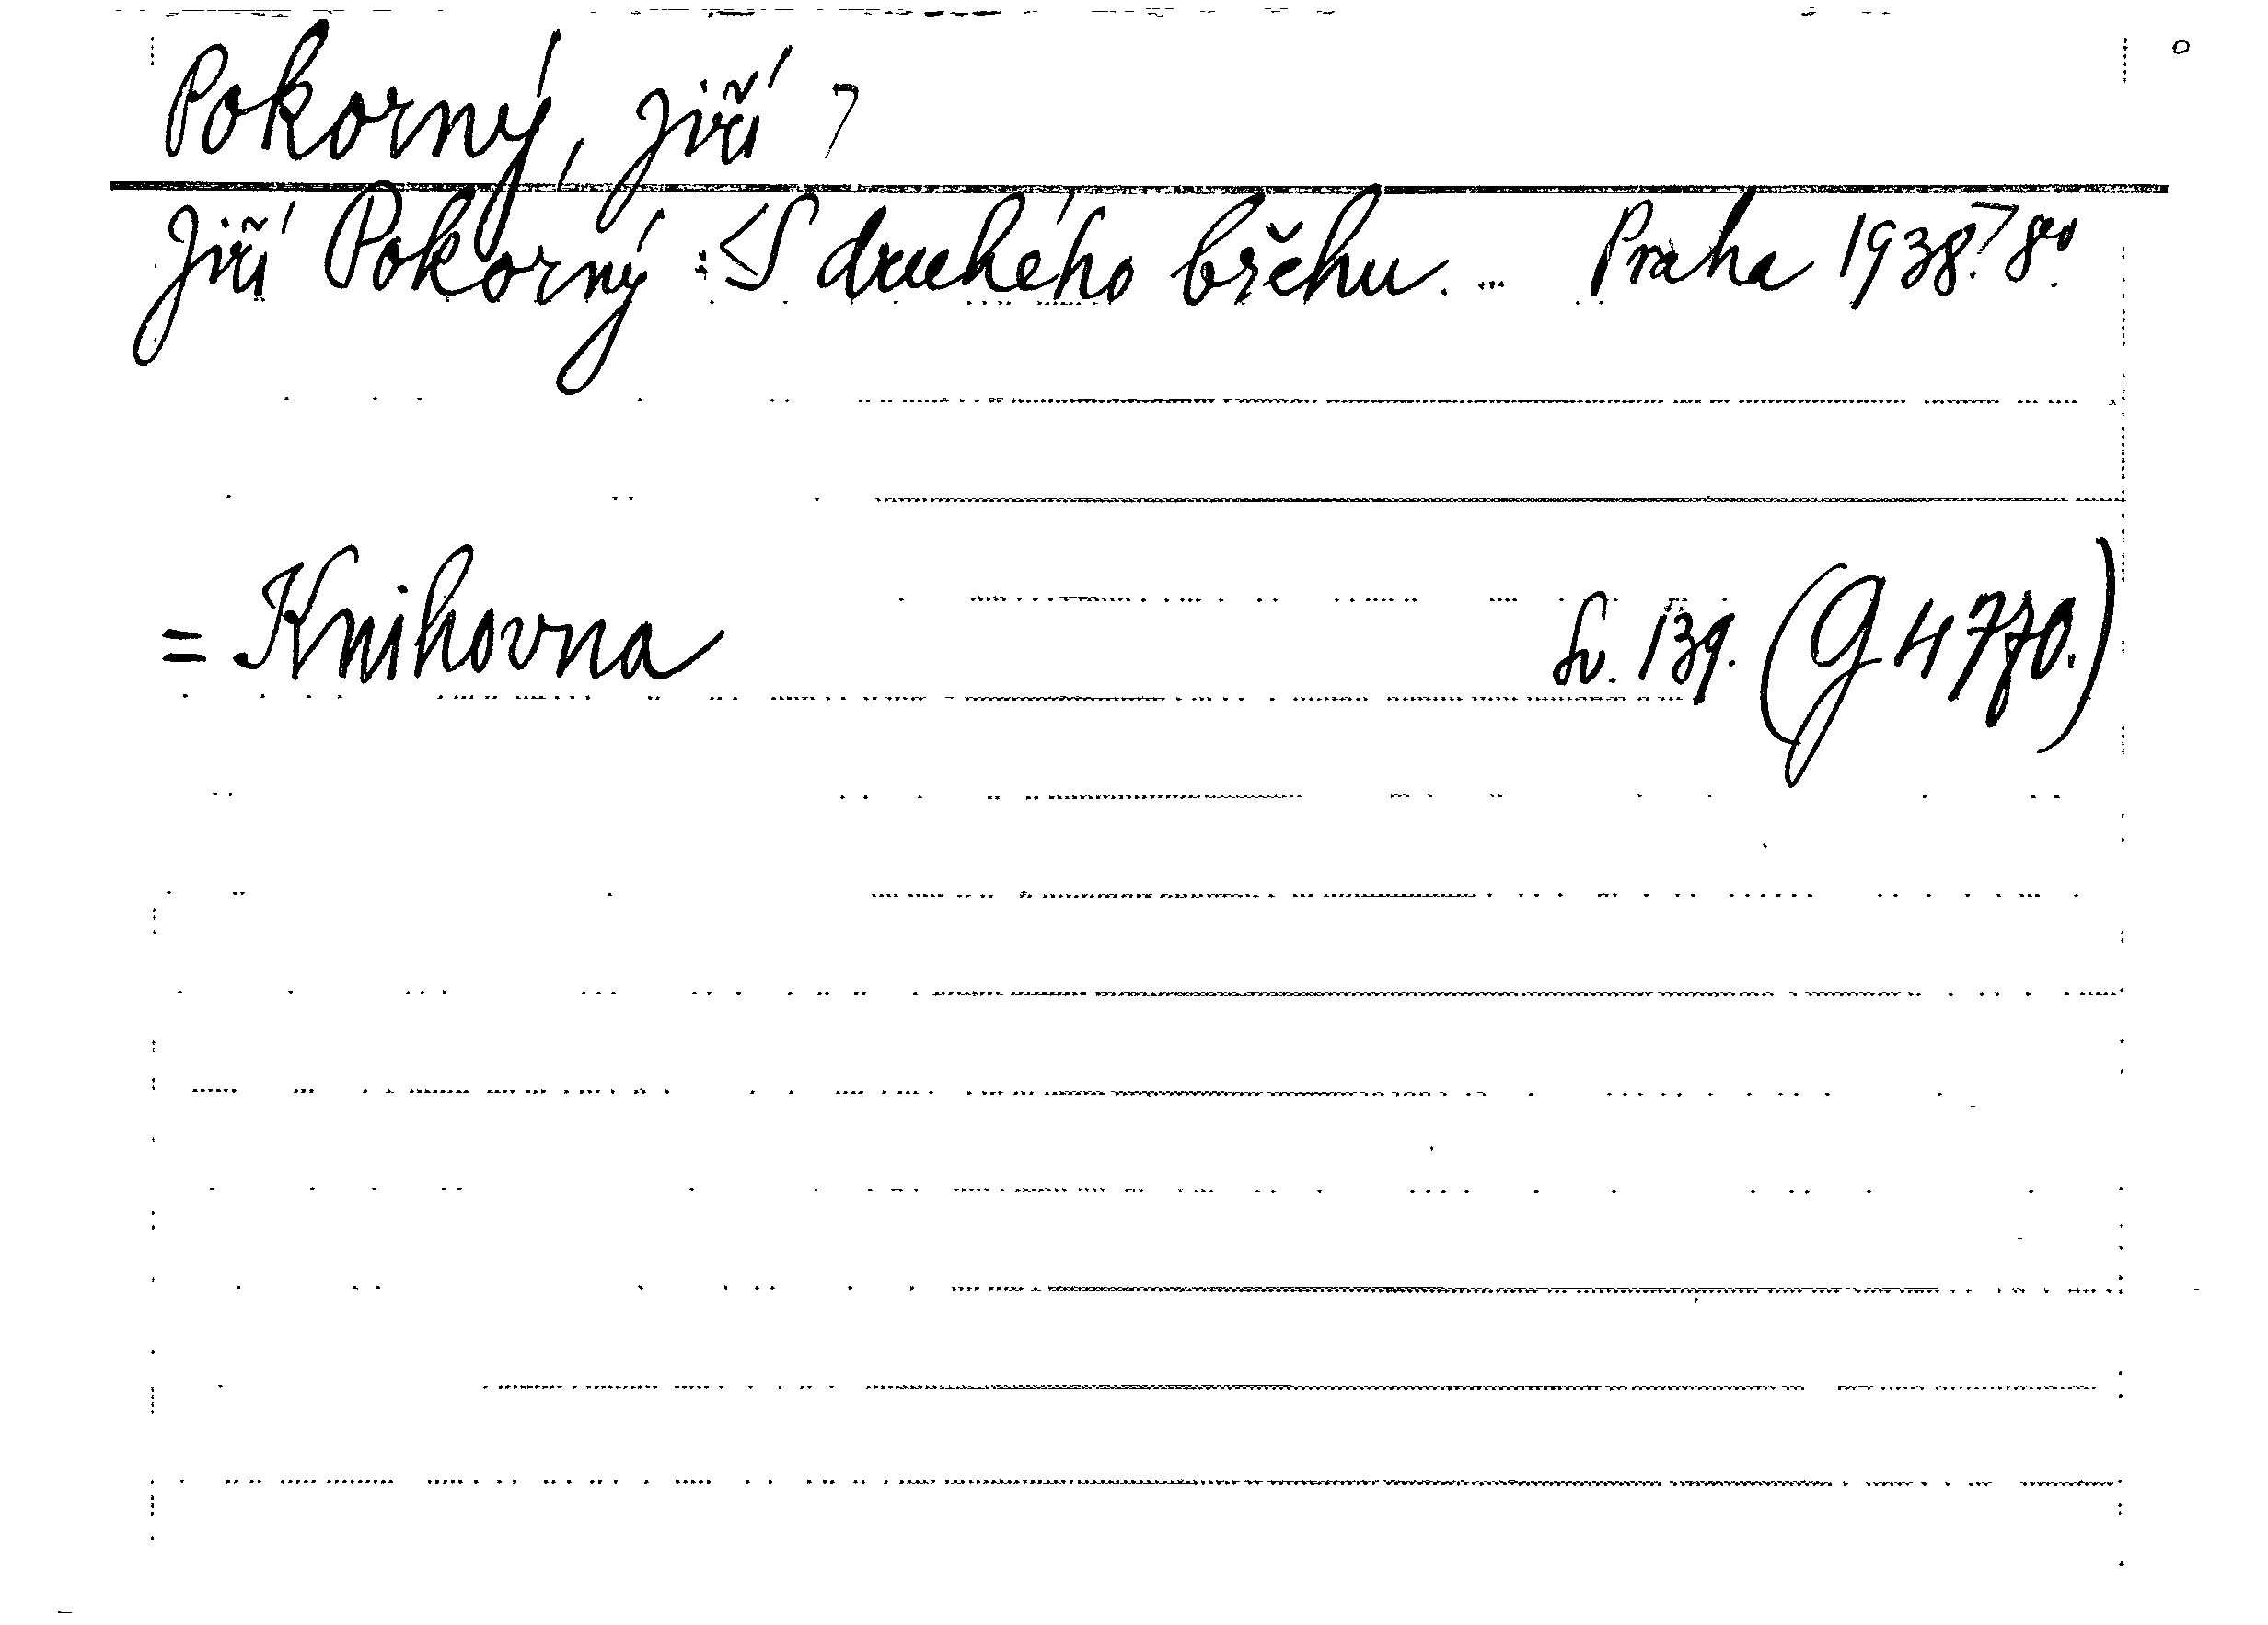 Pokorný, Jiří
Jiří Pokorný : <S druhého břehu. ... Praha 1938.> 8°.
= Knihovna Sv. 139. (G 4770.)